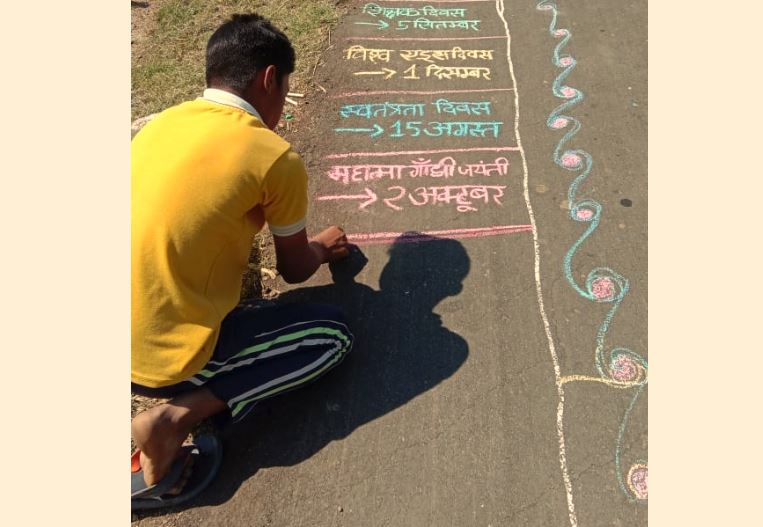 शिक्षक दिवस
→ 5 सितम्बर
विश्व एड्स दिवस
→ 1 दिसम्बर
स्वतंत्रता दिवस
→ 15 अगस्त
महात्मा गाँधी जयंती
→ 2 अक्टूबर